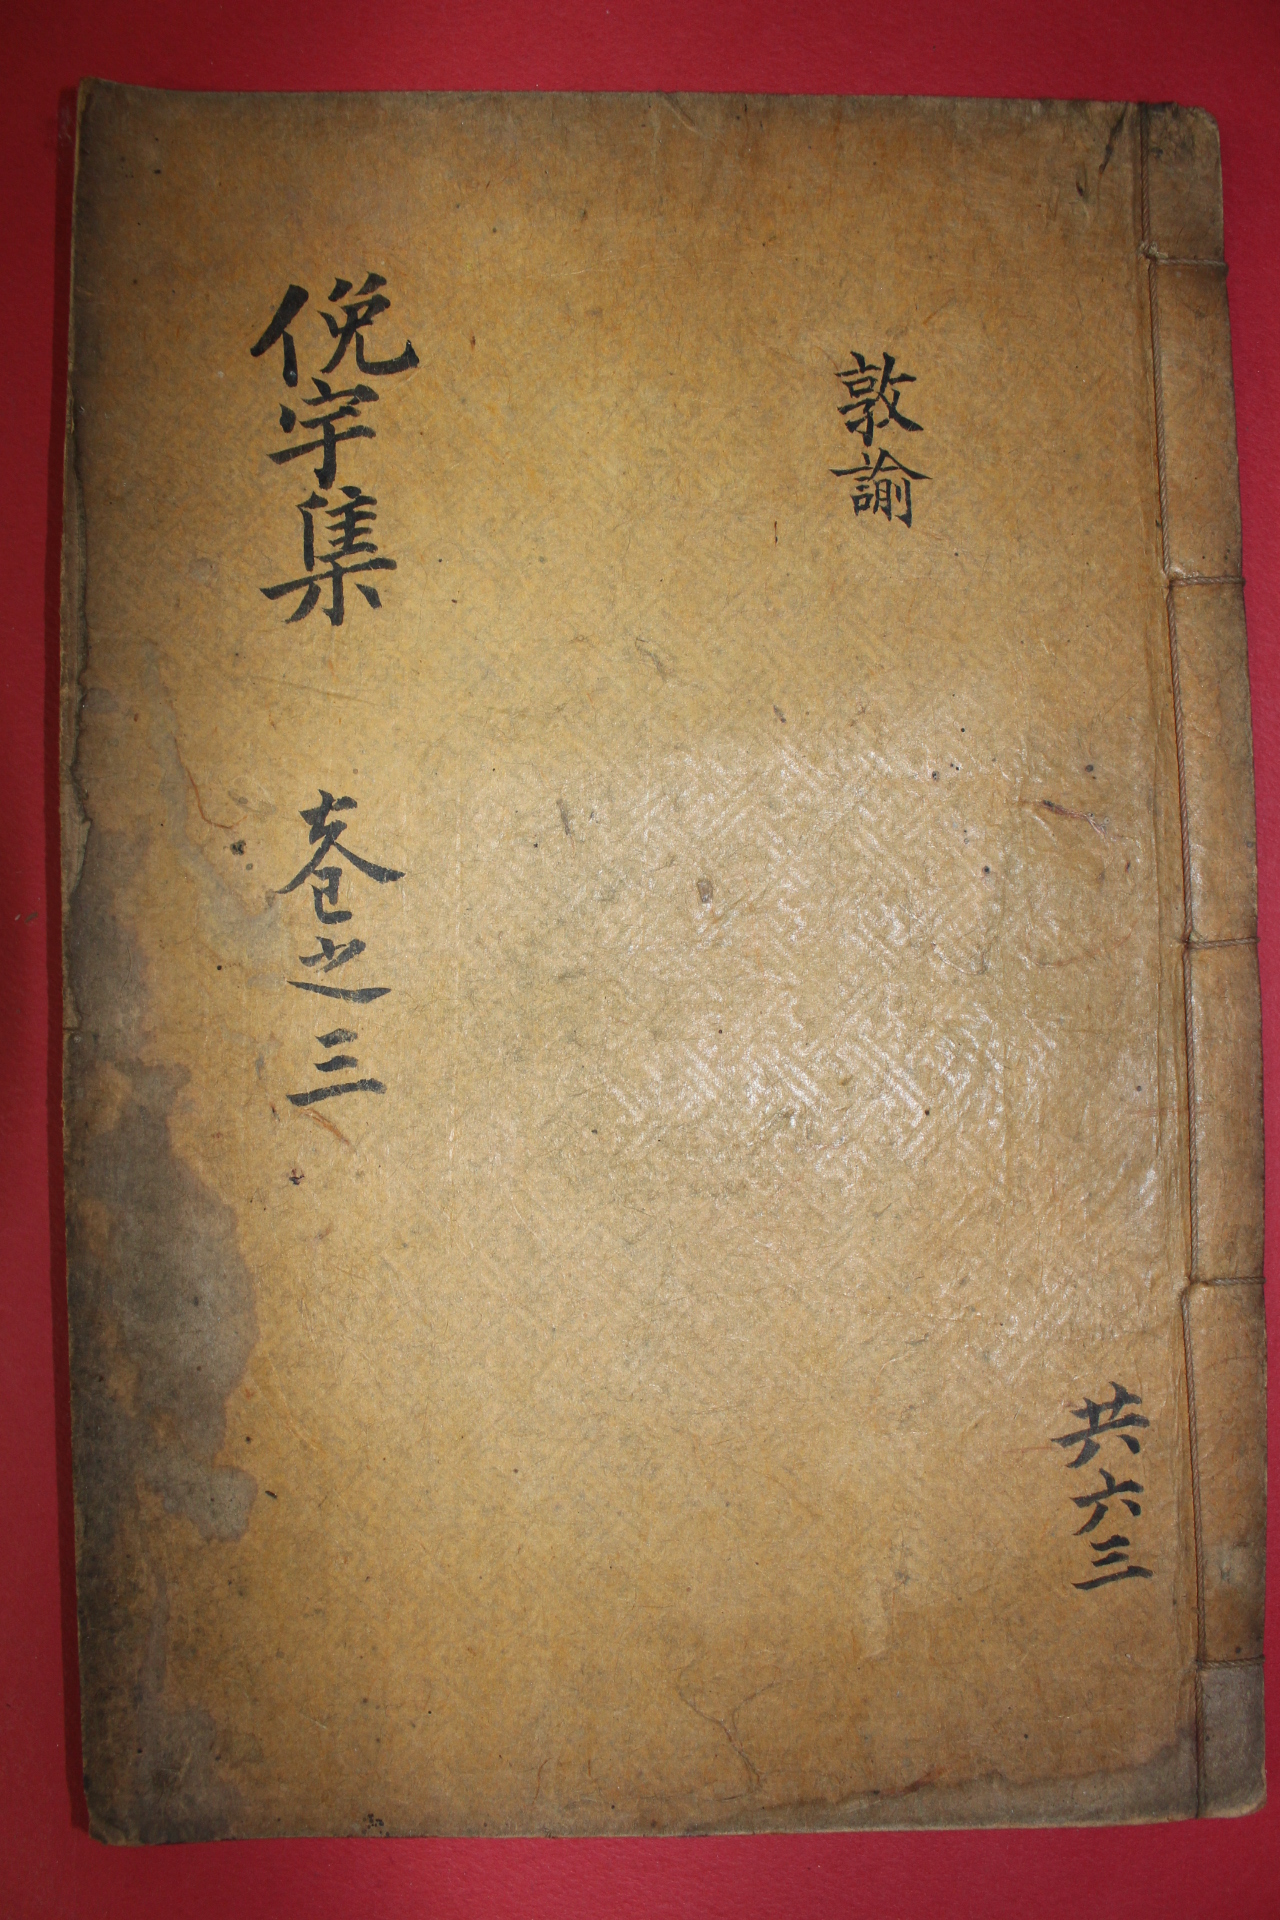 敦諭
共六三
俛宇集 卷之三